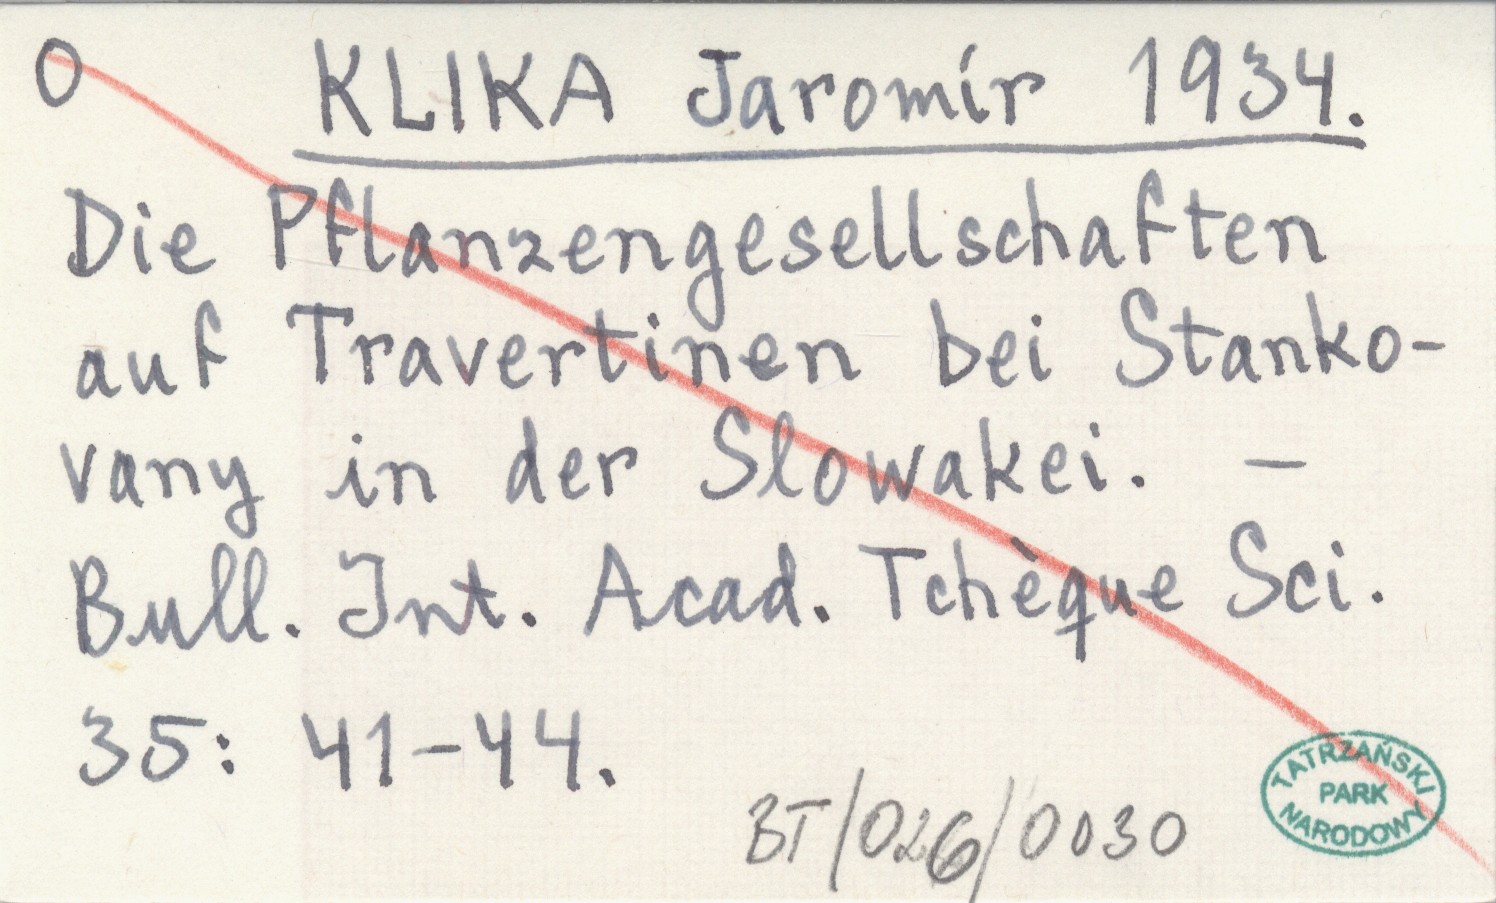 O KLIKA Jaromír 1934.
Die Pflanzengesellschaften
auf Travertinen bei Stanko-
vany in der Slowakei. –
Bull. Int. Acad. Tchèque Sci.
35: 41-44.
BT/026/0030
TATRZAŃSKI
PARK
NARODOWY